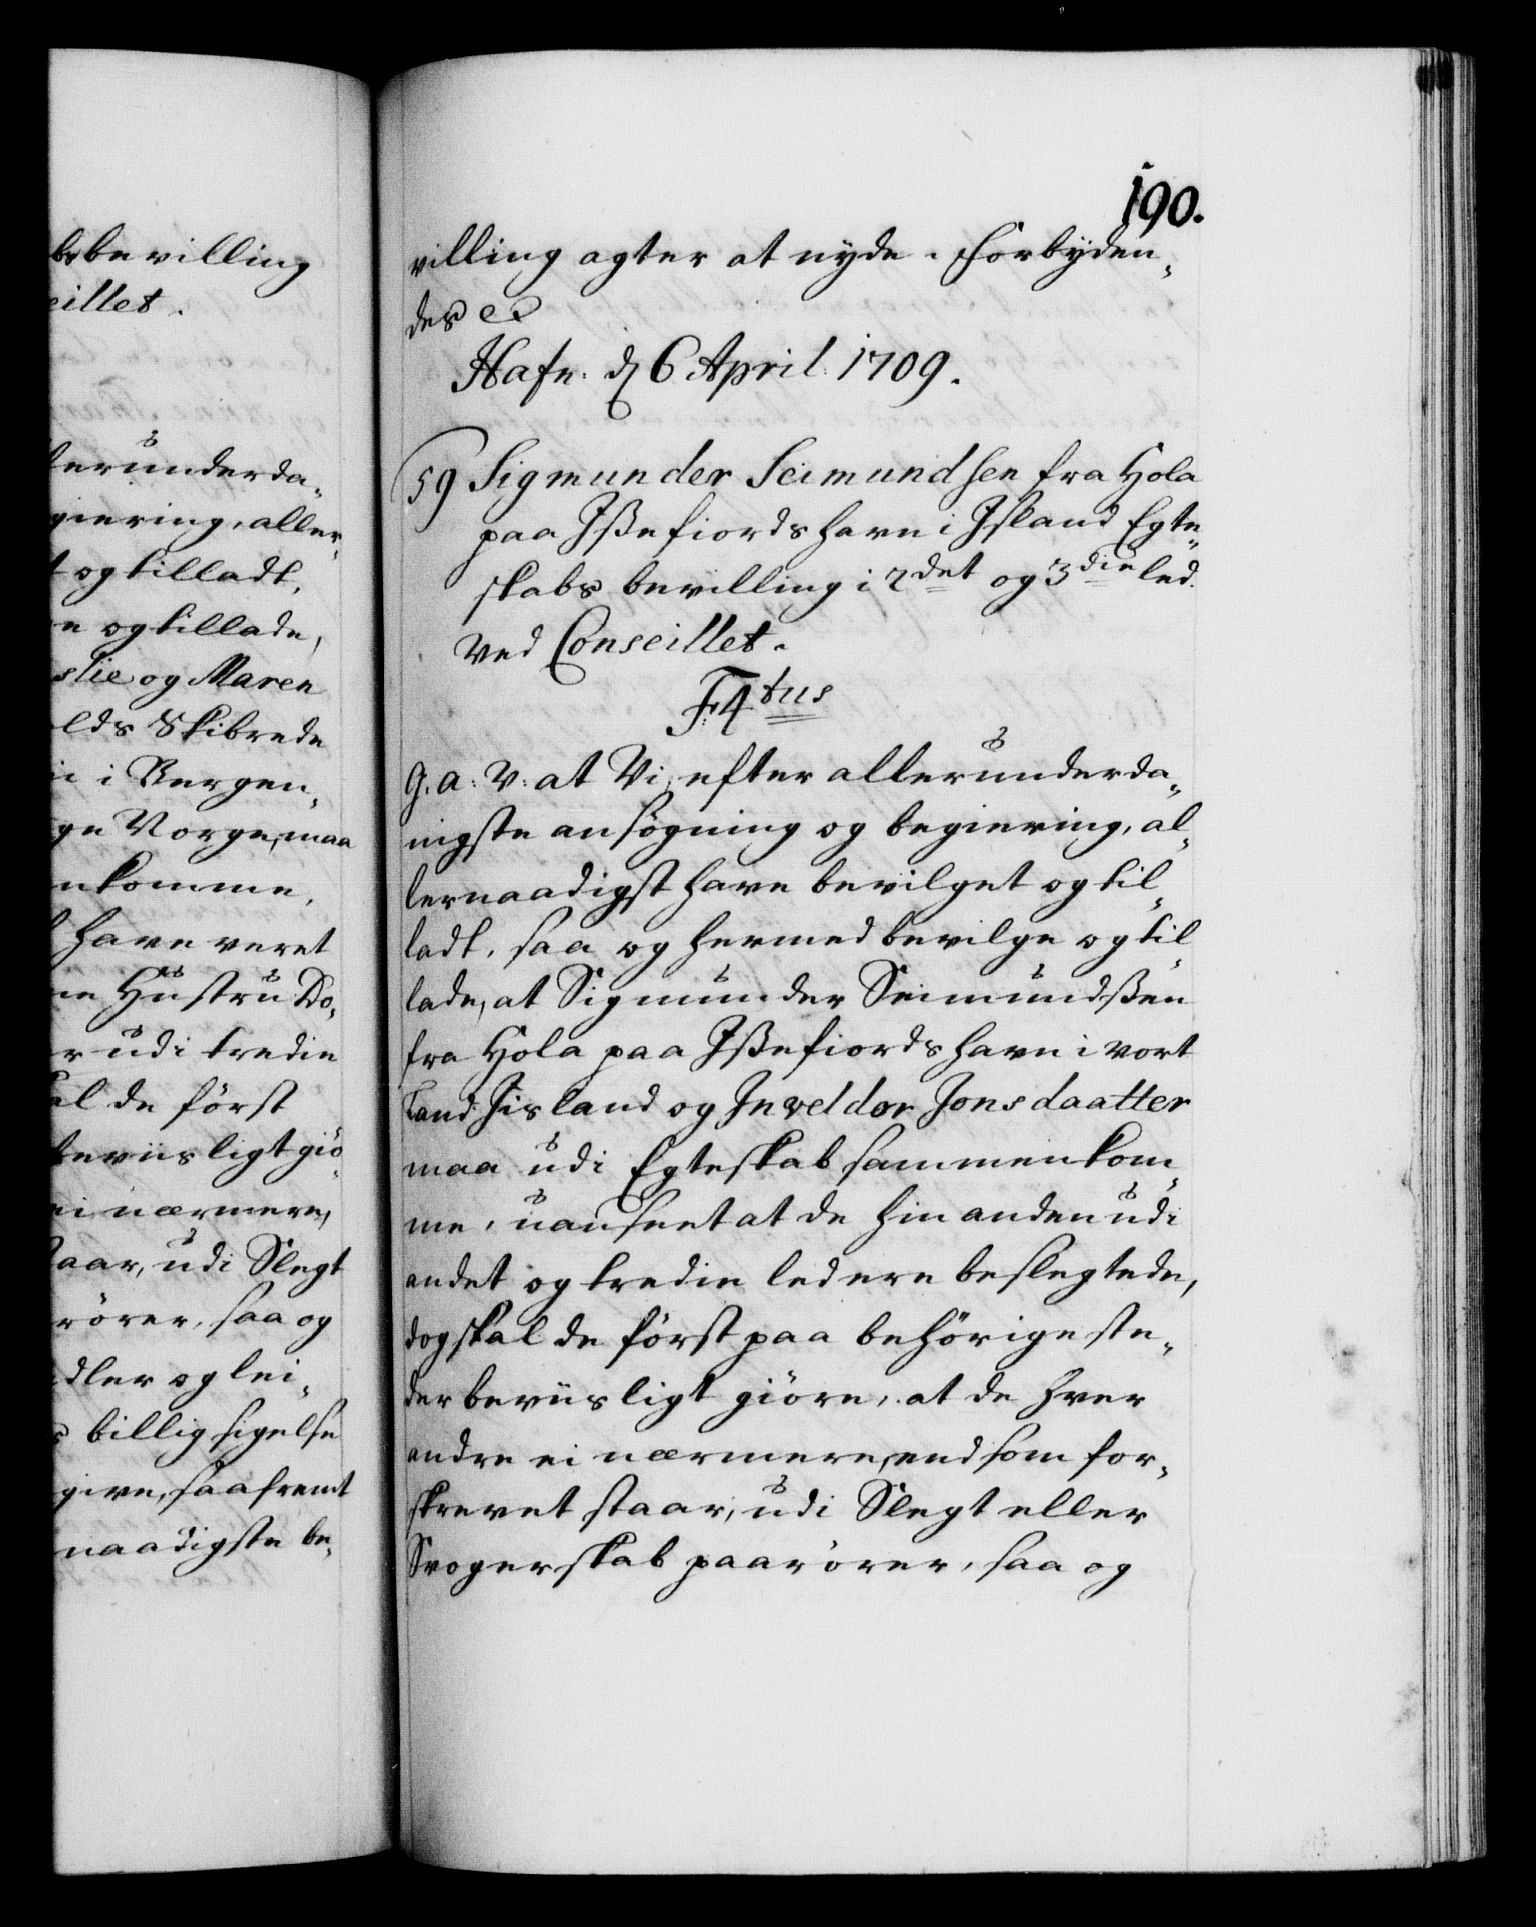 bsbevilling
eillet.
erunderda-
giering, aller-
t og tilladt,
e og tillade,
slie og Maren
lds Skibrede
i i Bergen-
ge Norge, maa
nkomme,
have veret
ne Hustru Do-
r udi tredie
al de först
beviisligt giö-
ei nærmere,
taar, udi Slegt
rörer, saa og
dler og lei-
s billig sigelse
give, saafremt
naadigste be-
190.
villing agter at nyde. Forbyden-
des ec
Hafn: d 6 April 1709.
59 Sigmunder Seimundsen fra Hola
paa Ißefiords havn i Island Egte-
skabs bevilling i 2det og 3die led.
Ved Conseillet.
F:4tus
G. a: V: at Vi, efter allerunderda-
nigste ansögning og begiering, al-
lernaadigst have bevilget og til-
ladt, saa og hermed bevilge og til-
lade, at Sigmunder Seimundßen
fra Hola paa Ißefiords havn i vort
Land Jisland og Inveldor Jonsdaatter
maa udi Egteskab sammenkom-
me, uanseet at de hinanden udi
andet og tredie led ere beslegtede,
dog skal de först paa behörige ste-
der beviisligt giöre, at de hver
andre ei nærmere, end som for-
skrevet staar, udi Slegt eller
Svogerskab paarörer, saa og